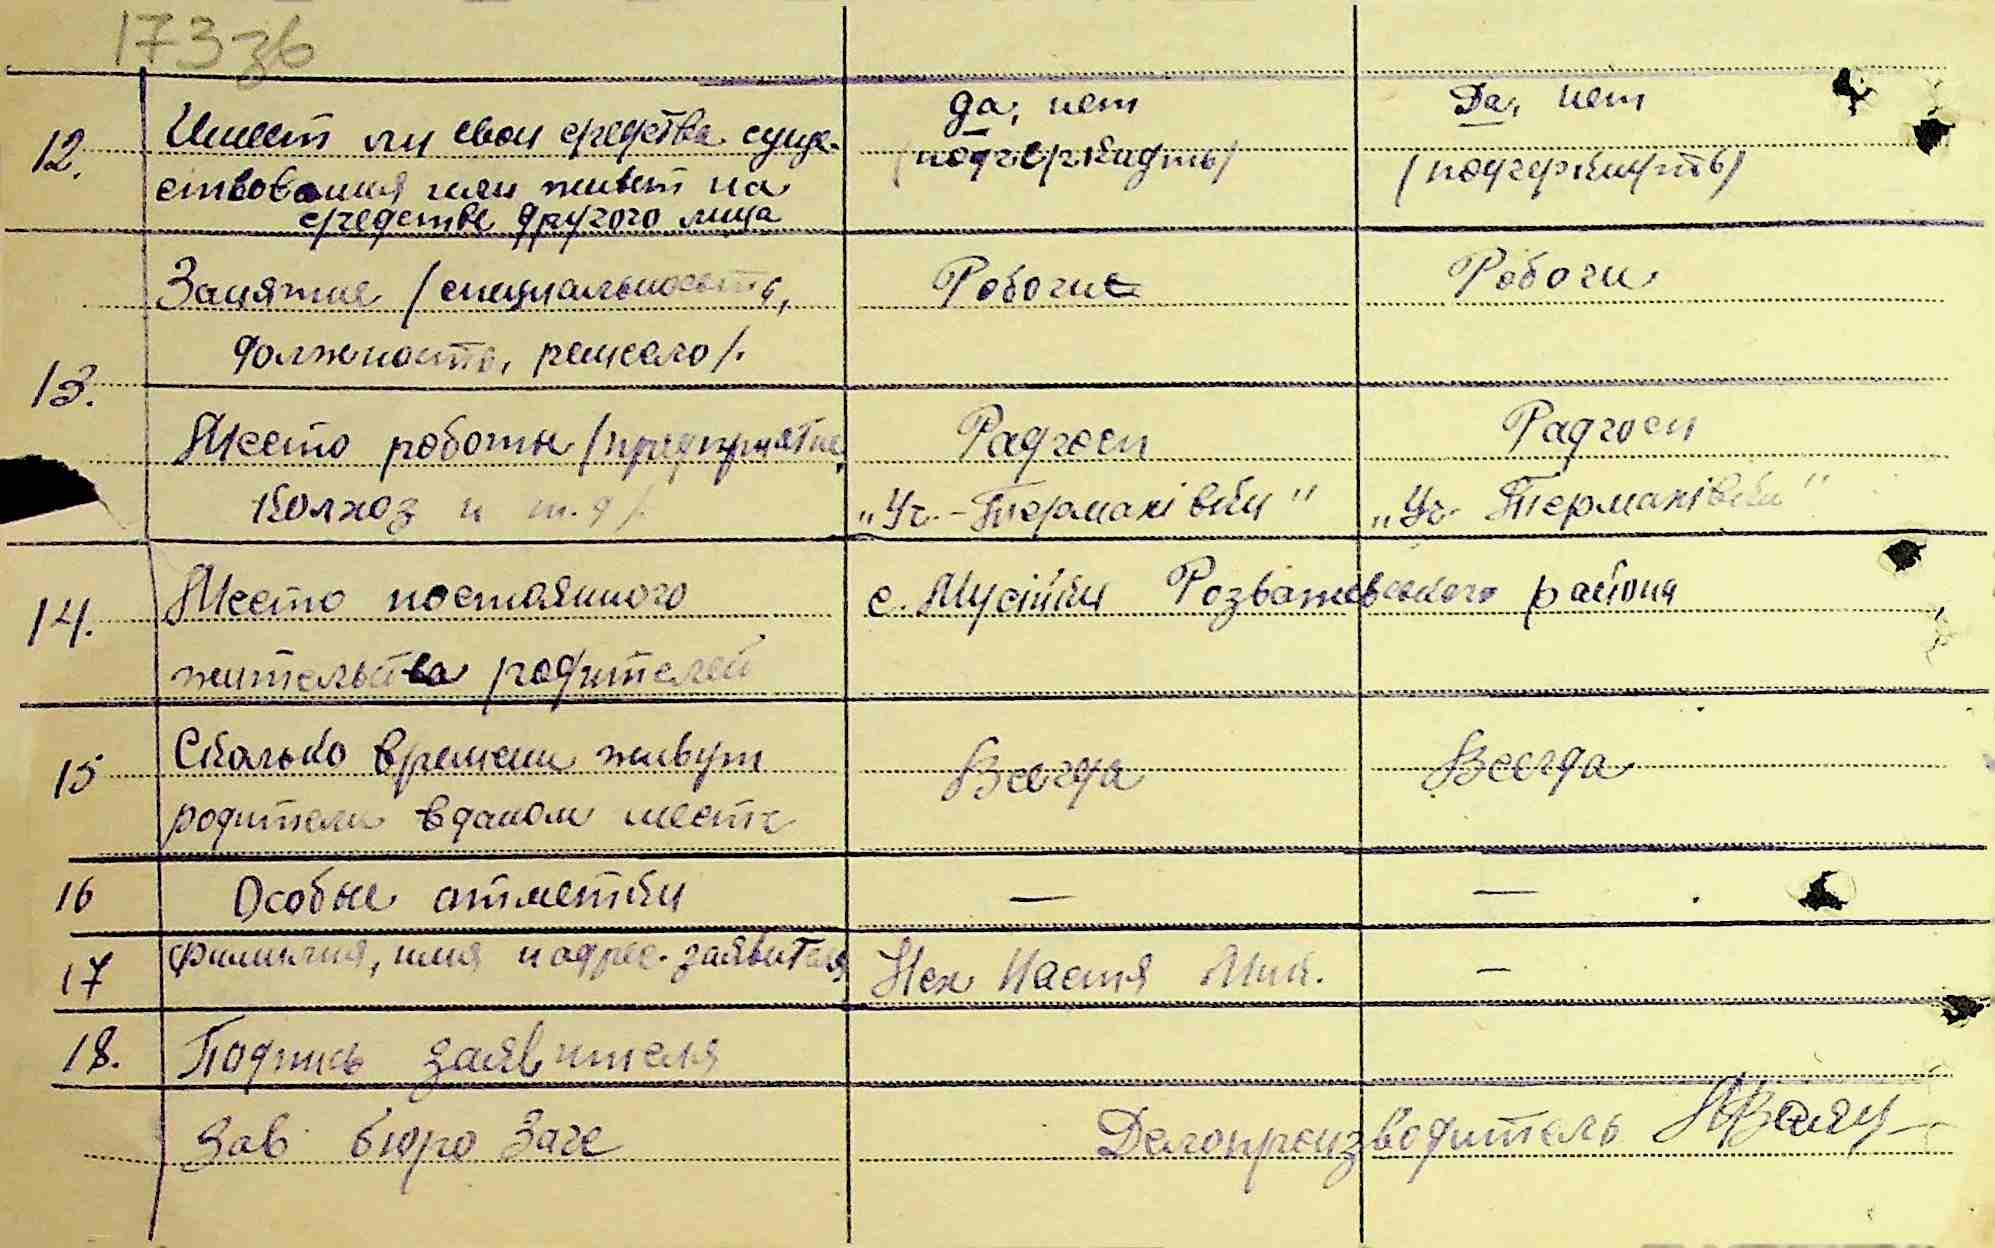 173 зв
12. Имеет ли свои средства суще- да, нет Да, нет
ствования или живет на (подчеркнуть) (подчеркнуть)
средстве другого лица
Занятие (специальность, Робочие Робочи
13. должность, ремесло).
Место роботы (предприятие, Радгосп Радгосп
колхоз и т.д.). „Уч.-Термахівки" „Уч. Термахівки"
14. Место постоянного с. Мусійки Розважевского района
жительства родителей
15 Сколько времени живут Всегда Всегда
родители в даном месте
16 Особые отметки — —
17 Фамилия, имя и адрес заявителя Настя —
18. Подпись заявителя
Зав бюро Загс Делопроизводитель